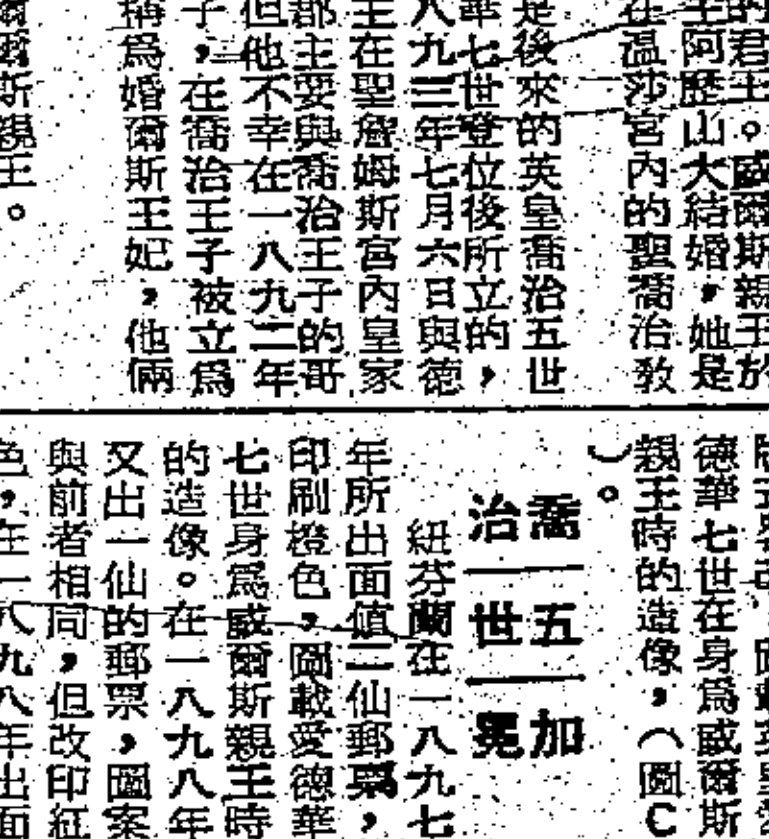 的君主。威爾斯親王於
王阿歷山大結婚,她是
在溫莎宮內的聖喬治教
是後來的英皇喬治五世
華七世登位後所立的,
八九三年七月六日與德
主在聖詹姆斯宮內皇家
郡主要與喬治王子的哥
但他不幸在一八九二年
子,在喬治王子被立爲
稱爲婚爾斯王妃,他倆
爾斯親王。
德華七世在身爲威爾斯
親王時的造像,(圖C
)。
喬五加
治世冕
紐芬蘭在一八九七
年所出面值二仙郵票,
印刷橙色,圖載愛德華
七世身爲威爾斯親王時
的造像。在一八九八年
又出一仙的郵票,圖案
與前者相同,但改印紅
色,在一八九八年出面